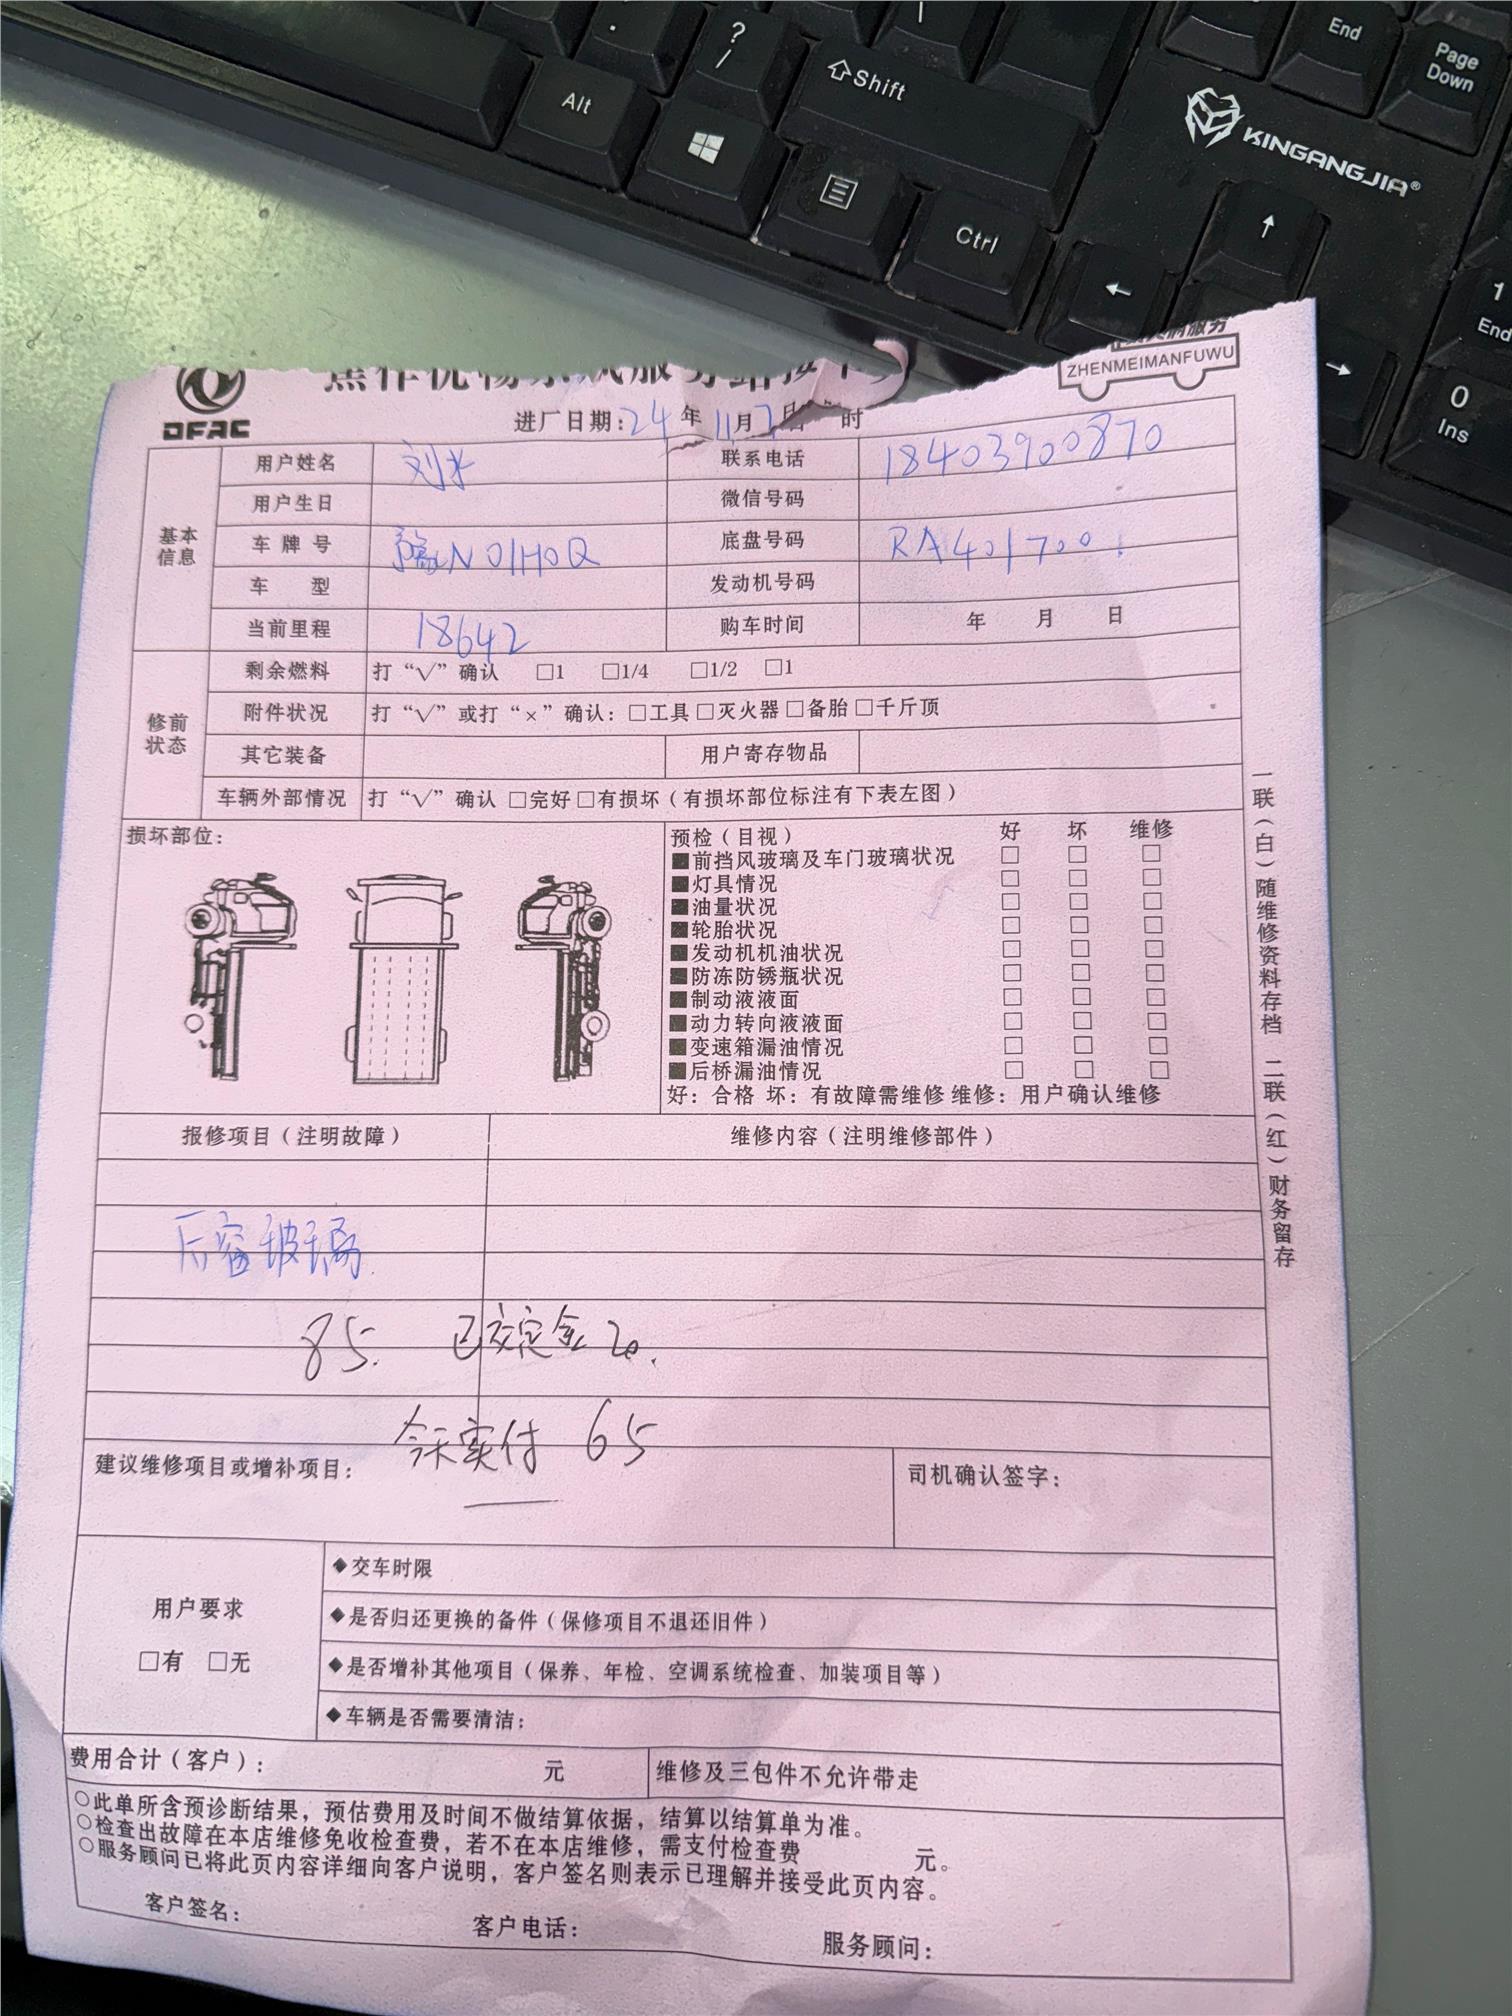 Alt
?
/
Shift
Ctrl
End
Page Down
KINGANGJIA®
1
End
0
Ins
DFAC
ZHENMEIMANFUWU
进厂日期:24年11月 日 时
基本信息
用户姓名 刘 联系电话 18403900870
用户生日 微信号码
车牌号 豫N01H0Q 底盘号码 RA401700
车 型 发动机号码
当前里程 18642 购车时间 年 月 日
修前状态
剩余燃料 打“√”确认 □1 □1/4 □1/2 □1
附件状况 打“√”或打“×”确认：□工具□灭火器□备胎□千斤顶
其它装备 用户寄存物品
车辆外部情况 打“√”确认 □完好□有损坏（有损坏部位标注有下表左图）
损坏部位：
预检（目视） 好 坏 维修
■前挡风玻璃及车门玻璃状况 □ □ □
■灯具情况 □ □ □
■油量状况 □ □ □
■轮胎状况 □ □ □
■发动机机油状况 □ □ □
■防冻防锈瓶状况 □ □ □
■制动液液面 □ □ □
■动力转向液液面 □ □ □
■变速箱漏油情况 □ □ □
■后桥漏油情况 □ □ □
好：合格 坏：有故障需维修 维修：用户确认维修
报修项目（注明故障） 维修内容（注明维修部件）
后窗玻璃
85. 已交定金20.
今天实付 65
建议维修项目或增补项目： 司机确认签字：
用户要求
□有 □无
◆交车时限
◆是否归还更换的备件（保修项目不退还旧件）
◆是否增补其他项目（保养、年检、空调系统检查、加装项目等）
◆车辆是否需要清洁：
费用合计（客户）： 元 维修及三包件不允许带走
○此单所含预诊断结果，预估费用及时间不做结算依据，结算以结算单为准。
○检查出故障在本店维修免收检查费，若不在本店维修，需支付检查费 元。
○服务顾问已将此页内容详细向客户说明，客户签名则表示已理解并接受此页内容。
客户签名： 客户电话： 服务顾问：
一联（白）随维修资料存档 二联（红）财务留存